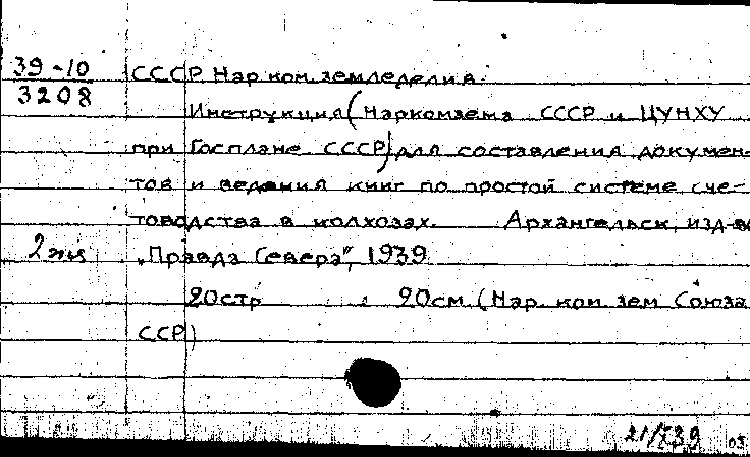 39-10 СССР Нар. ком. земледелия.
3208
Инструкция (Наркомзема СССР и ЦУНХУ
при Госплане СССР) для составления докумен-
тов и ведения книг по простой системе сче-
товодства в колхозах. Архангельск, изд-во
2 экз „Правда Севера“, 1939
20стр 20см (Нар. ком. зем Союза
СССР)